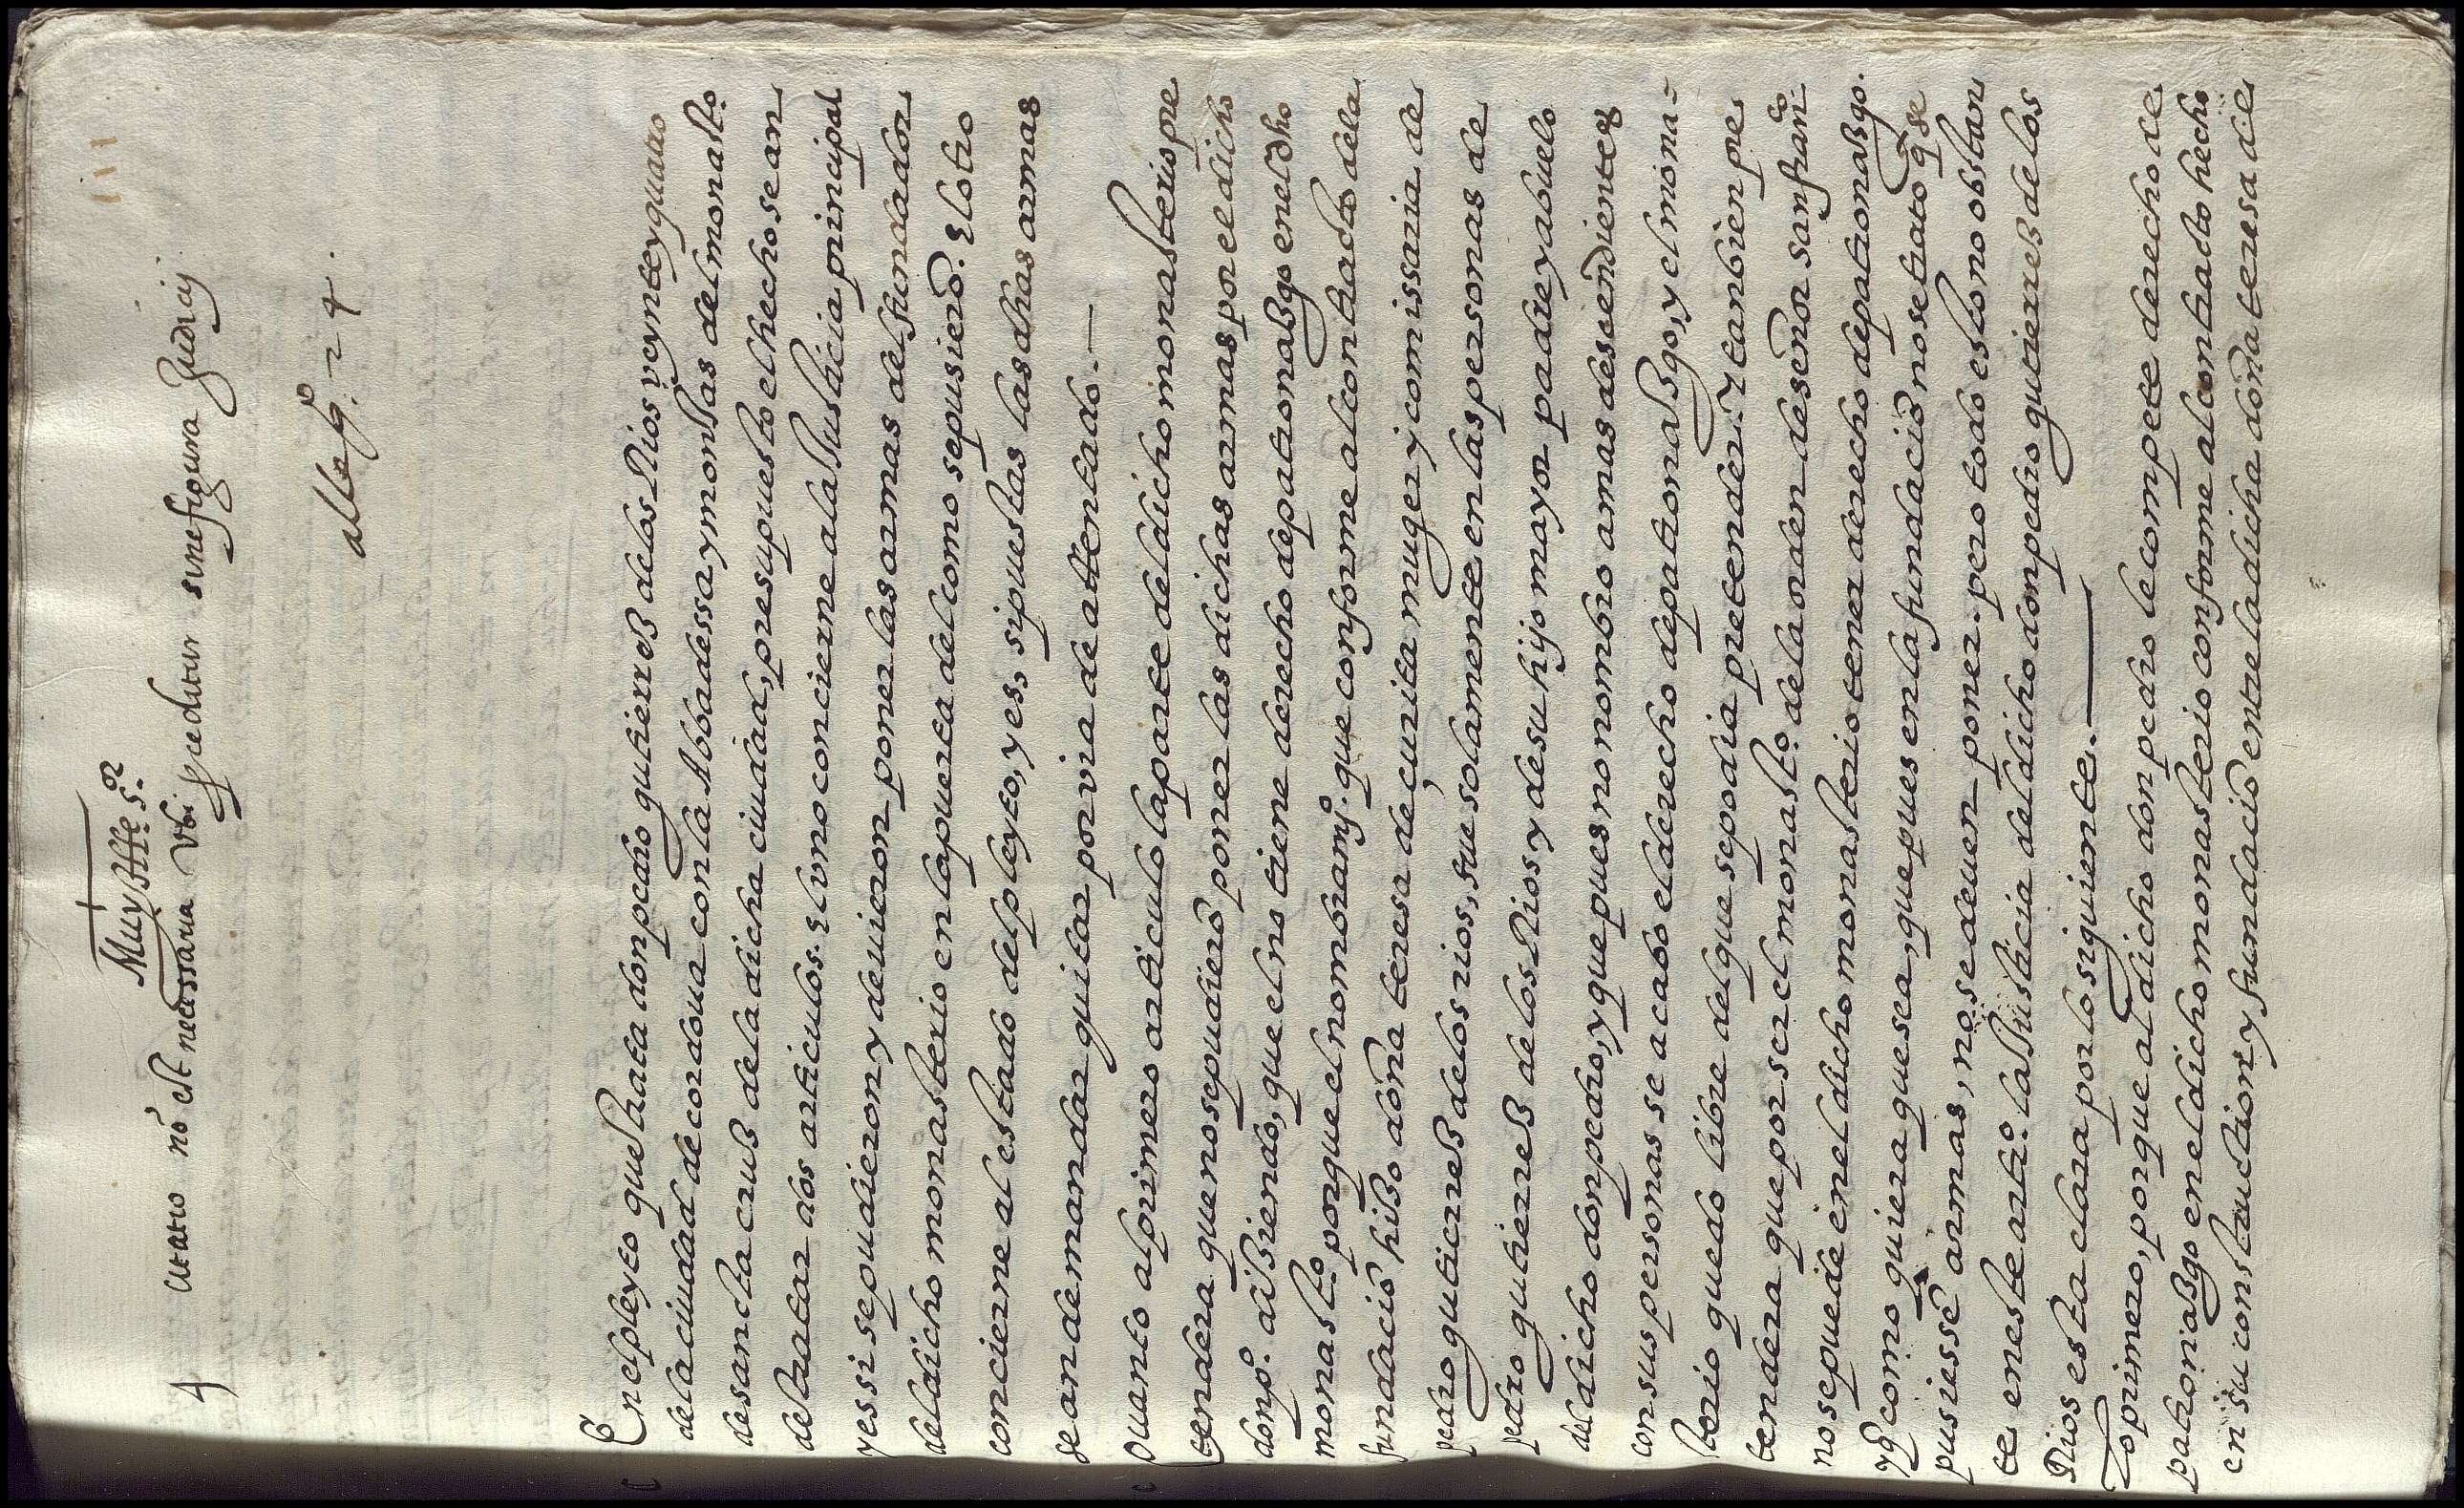 Muy Ille. s.or
Curatio nō est necessaria Vbi proceditur sine figura Judicij
allegº. 24.
En el pleyto que trata don pedro gutierreß de los Rios veynteyquatro
de la ciudad de cordoua con la Abbadessa y monjas del monastº.
de sancta cruß de la dicha ciudad, presupuesto el hecho se an
de tratar dos articulos. El vno concierne a la Justicia principal
y es si se pudieron y deuieron poner las armas del fundador
del dicho monasterio en la puerta del como se pusierō. El otro
concierne al estado del pleyto, y es, si puestas las dhas armas
se an de mandar quitar por via de attentado.—
Quanto al primero articulo la parte del dicho monasterio pre
tendera que no se pudierō poner las dichas armas por el dicho
don pº. dißiendo, que el no tiene derecho de patronaßgo en el dho
monastº. porque el nombramjº. que conforme al contrado de la
fundaciō hißo doña teresa de ççurita muger y comissaria de
pedro gutierreß de los rios, fue solamente en las personas de
pedro gutierreß de los Rios y de su hijo mayor padre y abuelo
del dicho don pedro, y que pues no nombro a mas descendientes
con sus personas se acabo el derecho de patronaßgo, y el mona-
sterio quedo libre del que se podia pretender. Y tanbien pre
tendera que por ser el monastº. de la orden de señor san franco
no se puede en el dicho monasterio tener derecho de patronaßgo.
y q̄ como quiera que sea, que pues en la fundaciō no se trato q̄ se
pusiessē armas, no se deuen poner. pero todo esto no obstan
te en este artº. la Justicia del dicho dom pedro gutierreß de los
Rios esta clara por lo siguiente.—
Lo primero, porque al dicho don pedro le compete derecho de
patronaßgo en el dicho monasterio conforme al contrado hecho
en su construction y fundaciō entre la dicha doña teresa de